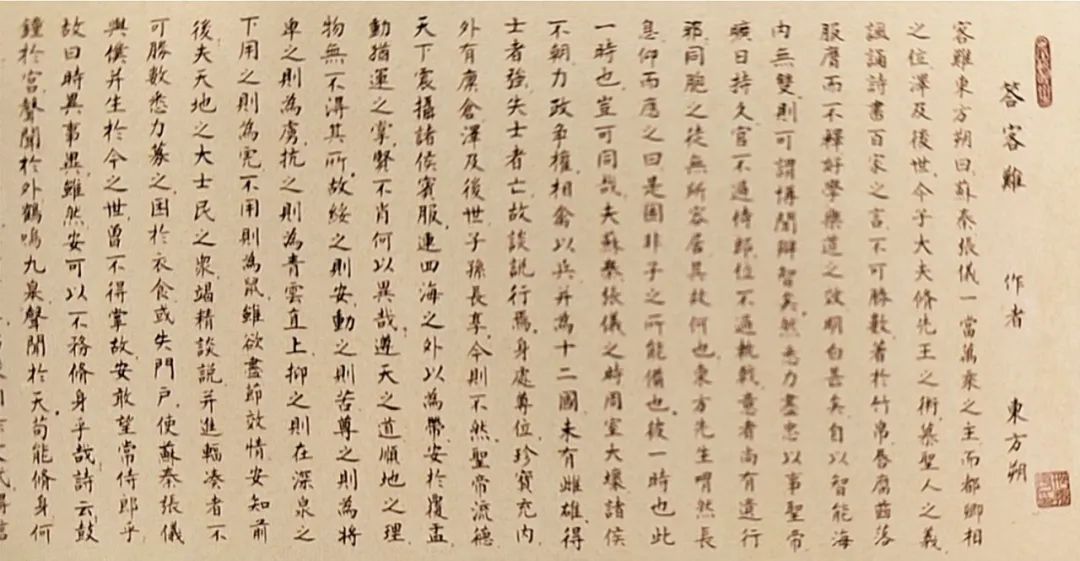 答客難 作者 東方朔
客難東方朔曰蘇秦張儀一當萬乘之主而都卿相
之位澤及後世今子大夫脩先王之術慕聖人之義
諷誦詩書百家之言不可勝數著於竹帛唇腐齒落
服膺而不釋好學樂道之效明白甚矣自以智能海
內無雙則可謂博聞辯智矣然悉力盡忠以事聖帝
曠日持久官不過侍郎位不過執戟意者尚有遺行
邪同胞之徒無所容居其故何也東方先生喟然長
息仰而應之曰是固非子之所能備也彼一時也此
一時也豈可同哉夫蘇秦張儀之時周室大壞諸侯
不朝力政爭權相禽以兵并為十二國未有雌雄得
士者強失士者亡故談說行焉身處尊位珍寶充內
外有廩倉澤及後世子孫長享今則不然聖帝流德
天下震攝諸侯賓服連四海之外以為帶安於覆盂
動猶運之掌賢不肖何以異哉遵天之道順地之理
物無不得其所故綏之則安動之則苦尊之則為將
卑之則為虜抗之則為青雲直上抑之則在深泉之
下用之則為虎不用則為鼠雖欲盡節效情安知前
後夫天地之大士民之眾竭精談說并進輻湊者不
可勝數悉力募之困於衣食或失門戶使蘇秦張儀
與僕并生於今之世曾不得掌故安敢望常侍郎乎
故曰時異事異雖然安可以不務脩身乎哉詩云鼓
鐘於宮聲聞於外鶴鳴九皋聲聞於天苟能脩身何